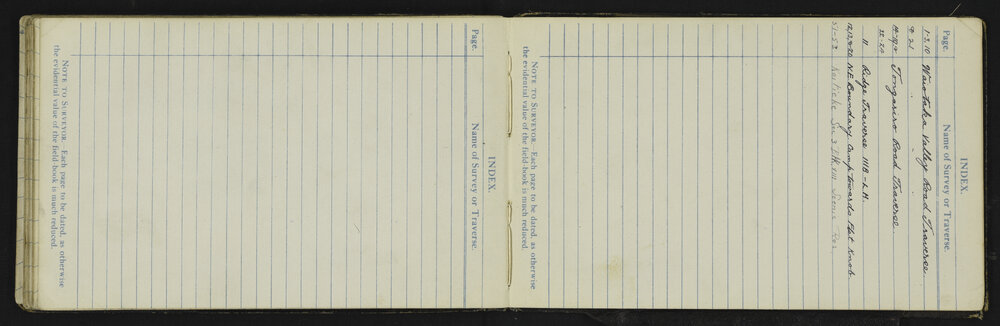 INDEX.
Page. Name of Survey or Traverse.
1-3, 10 Waiotaka Valley Road Traverse
9-21 " " "
14-19, 4 Tongariro Road Traverse
22-24
11 Ridge Traverse IIIB - L.H.
12, 13, 4-26 N.E. Boundary Camp towards Flat Knob
51-52 Kaitieke Sec 3
NOTE TO SURVEYOR.—Each page to be dated, as otherwise
the evidential value of the field-book is much reduced.
INDEX.
Page. Name of Survey or Traverse.
NOTE TO SURVEYOR.—Each page to be dated, as otherwise
the evidential value of the field-book is much reduced.